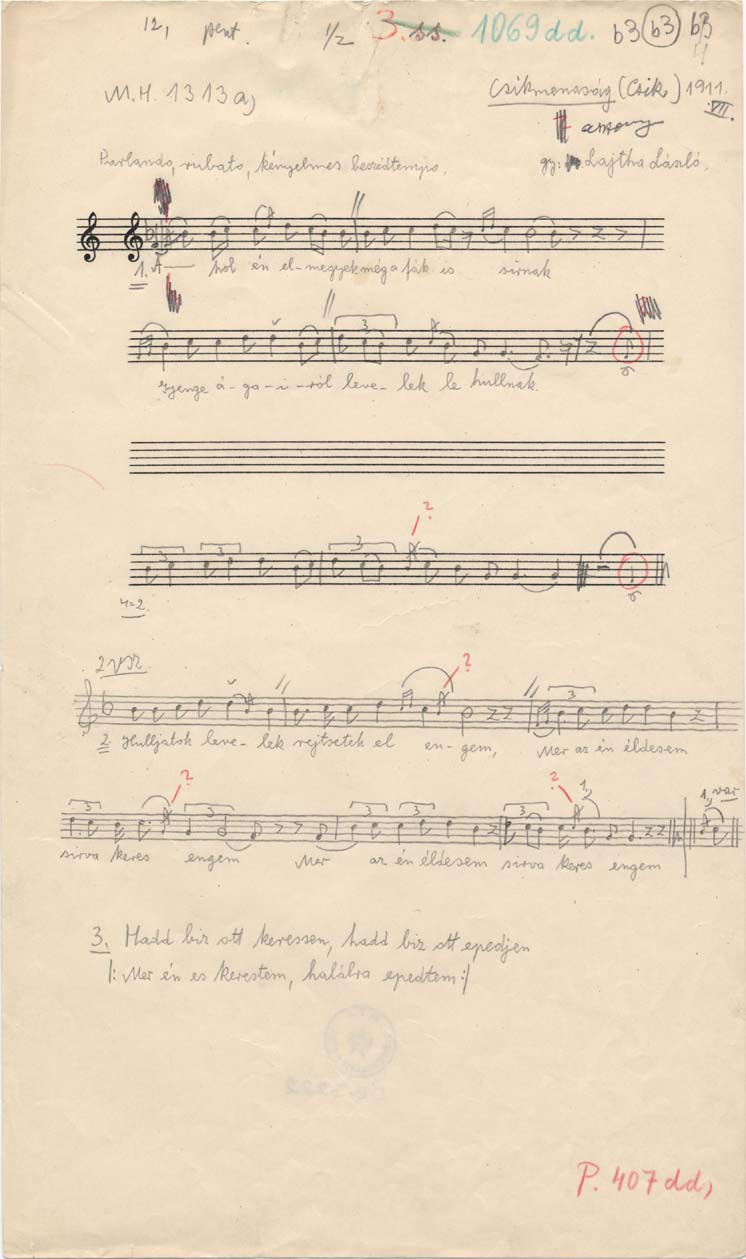 12, pent. 1/2 3. 1069dd. b3 b3 b3
4
M.H. 1313a, Csikmenaság (Csik) 1911.
VII.
asszony
Parlando, rubato, kényelmes beszédtempo. gy: Lajtha László.
1. A— hol én el-megyek még a fák is sirnak
3
Gyenge á-ga-i-ról leve-lek le hullnak.
?
3 3 3
4=2.
2 vsz. ?
3
2. Hulljatok leve-lek rejtsetek el en-gem, Mer az én éldesem
? ? 1, 1, var
3 3 3 3 3
sirva keres engem Mer az én éldesem sirva keres engem
3. Hadd biz ott keressen, hadd biz ott epedjen
|: Mer én es kerestem, halálra epedtem :|
P. 407dd,